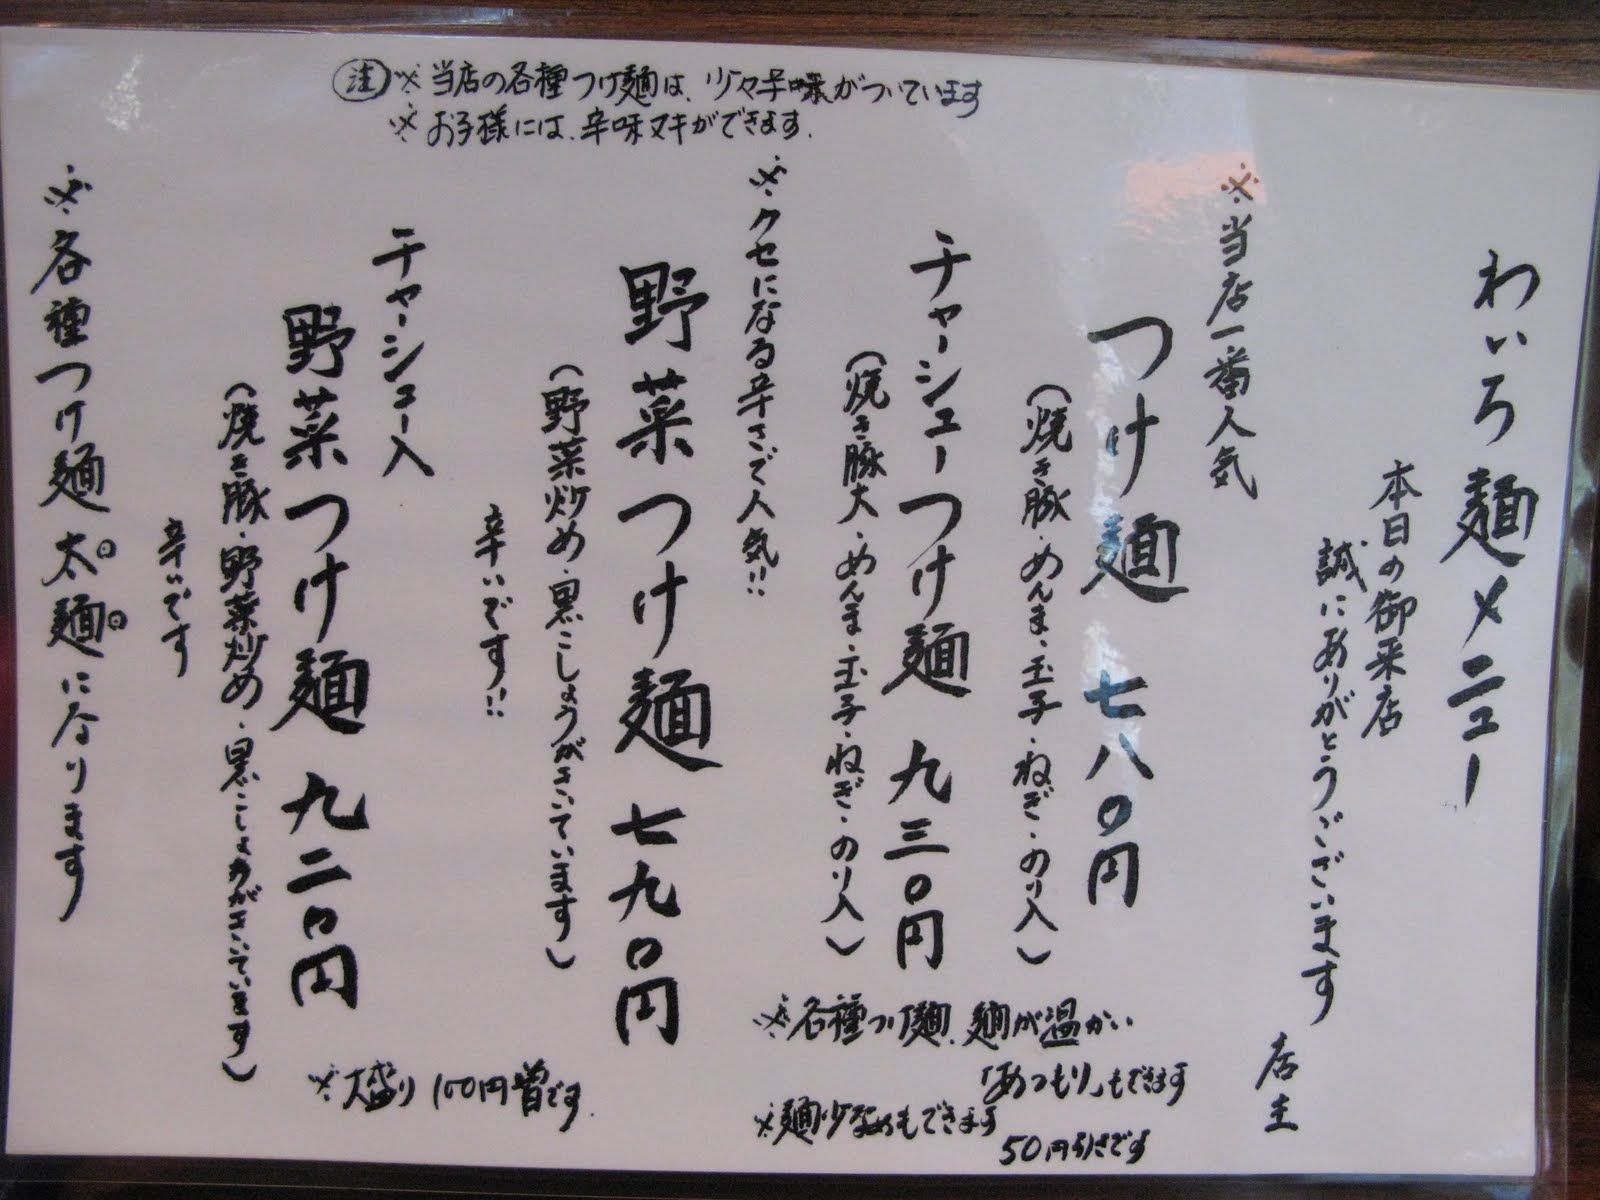 わいろ麺メニュー
本日の御来店
誠にありがとうございます
店主
※当店一番人気
つけ麺 七八〇円
(焼き豚・めんま・玉子・ねぎ・のり入)
チャーシューつけ麺 九三〇円
(焼き豚大・めんま・玉子・ねぎ・のり入)
※クセになる辛さで人気!!
野菜つけ麺 七九〇円
(野菜炒め・黒こしょうがきいています)
辛いです!!
チャーシュー入
野菜つけ麺 九二〇円
(焼き豚・野菜炒め・黒こしょうがきいています)
辛いです
※各種つけ麺太麺になります
注※当店の各種つけ麺は、少々辛味がついています
※お子様には、辛味ヌキができます.
※各種つけ麺、麺が温かい
「あつもり」もできます
※麺少なめもできます
50円引きです
※大盛り 100円増です.